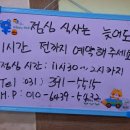 점심 식사는 늦어도
1시간 전까지 예약해주세요
점심시간: 11시30~2시까지
Tel : 031) 391-5515
H.P : 010-6439-5432